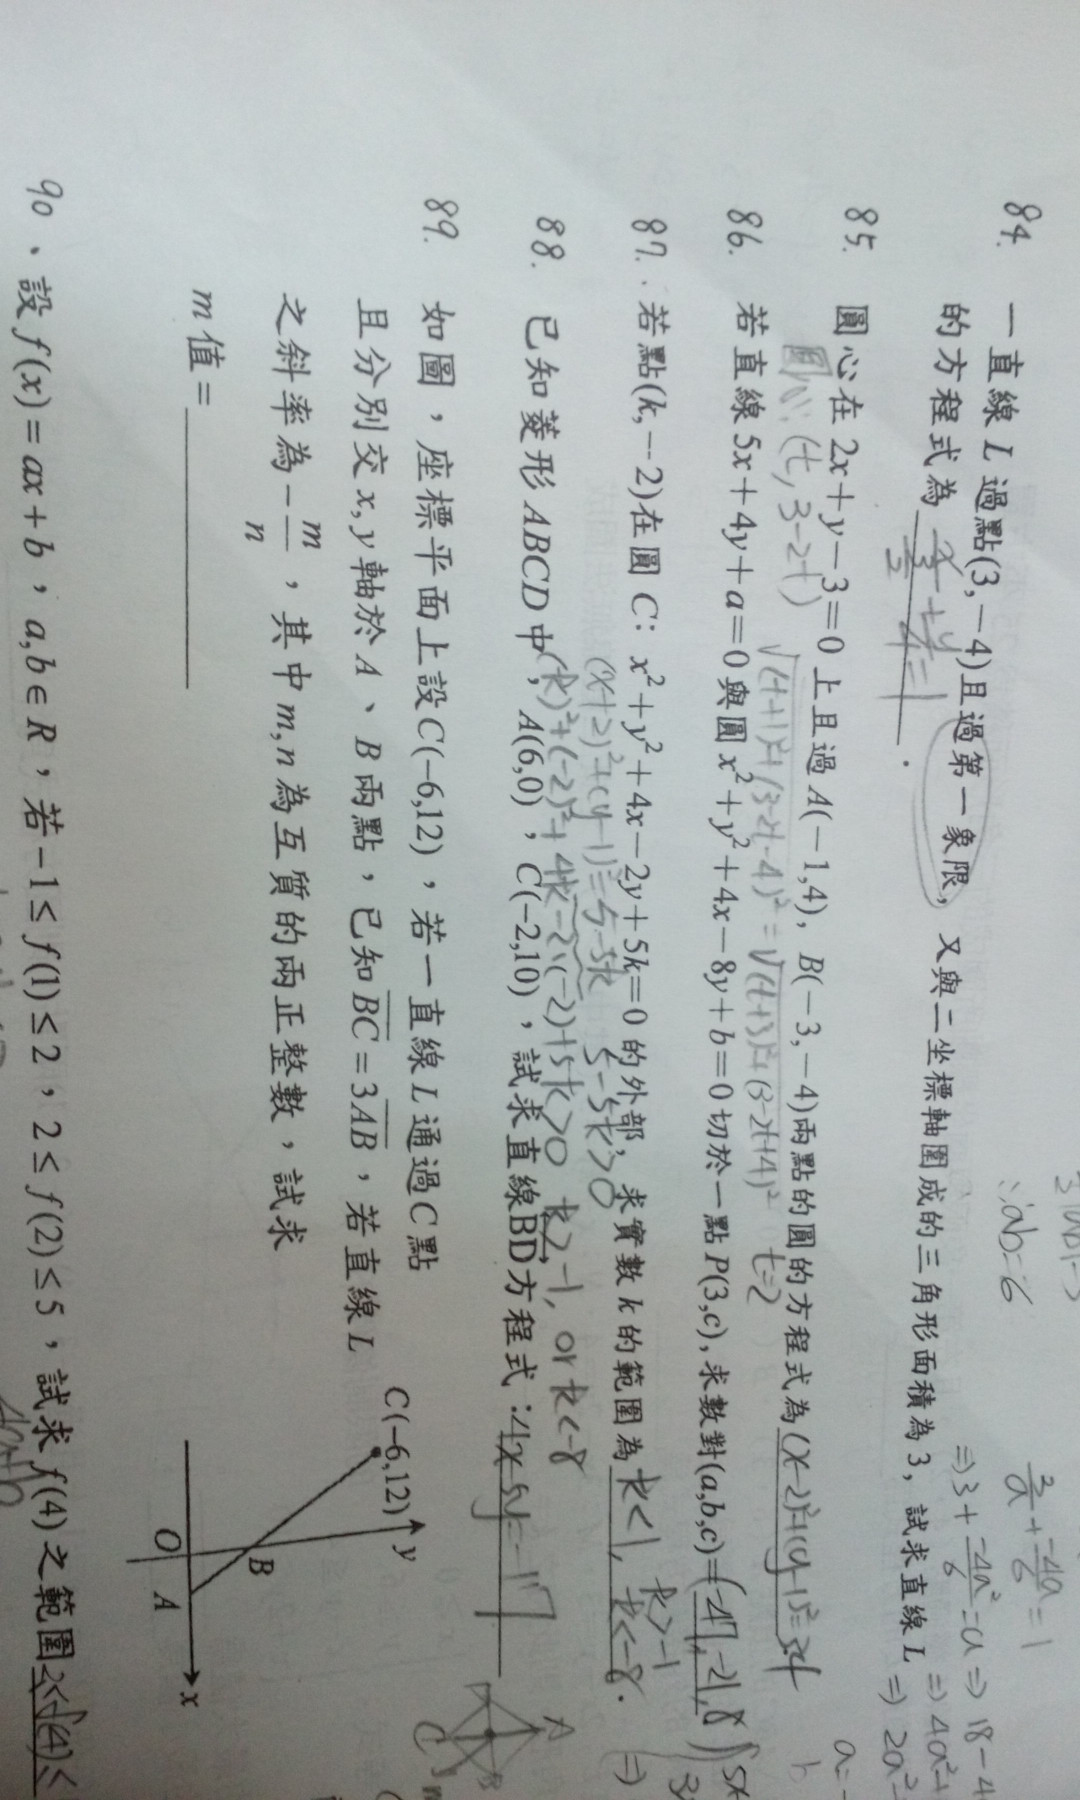 84. 一直線 L 過點(3,−4)且過第一象限, 又與二坐標軸圍成的三角形面積為 3, 試求直線 L
的方程式為
85. 圓心在 2x+y−3=0 上且過 A(−1,4), B(−3,−4)兩點的圓的方程式為 (x-2)²+(y+1)²=34
圓心: (t, 3-2t) √(t+1)²+(3-2t-4)² = √(t+3)²+(3-2t+4)² t=2
86. 若直線 5x+4y+a=0 與圓 x²+y²+4x−8y+b=0 切於一點 P(3,c), 求數對(a,b,c)=(-47,-21,8)
87. 若點(k,−2)在圓 C: x²+y²+4x−2y+5k=0 的外部, 求實數 k 的範圍為 k<1, k<-8.
k>-1
(x+2)²+(y-1)²=5-5k 5-5k>0
(k)²+(-2)²+4k-2(-2)+5k>0 k>-1, or k<-8
88. 已知菱形 ABCD 中, A(6,0), C(−2,10), 試求直線BD方程式:4x-5y=-17
89. 如圖,座標平面上設 C(−6,12),若一直線 L 通過 C 點
且分別交 x,y 軸於 A、B 兩點,已知 BC=3AB,若直線 L
之斜率為 −m/n,其中 m,n 為互質的兩正整數,試求
m 值=
C(−6,12)
y
B
O
A
x
90、設 f(x)=ax+b,a,b∈R,若 −1≤f(1)≤2,2≤f(2)≤5,試求 f(4) 之範圍
∴ab=6
3/a + -4a/6 = 1
⇒3+ -4a²/6 =a ⇒ 18-4